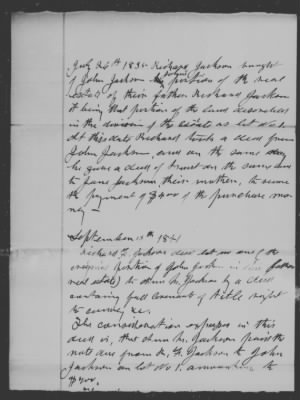 July 26th 1835 Richard Jackson bought
of John Jackson his portion of the real
estate of their father Richard Jackson
it being that portion of the land described
in the division of the estate as lot No 1.
At this date Richard took a deed from
John Jackson, and on the same day
he gives a deed of trust on the same land
to Jane Jackson, their mother, to secure
the payment of $400 of the purchase mo-
ney —
September 15th 1841
Richard L. Jackson deed lot no one (the
original portion of John Jackson in his father's
real estate) to Jackson by a deed
containing full covenant of title right
to convey, &c.
The consideration expressed in this
deed is, that Jackson paid the
note due from R. L. Jackson to John
Jackson on lot No 1. amounting to
$400.